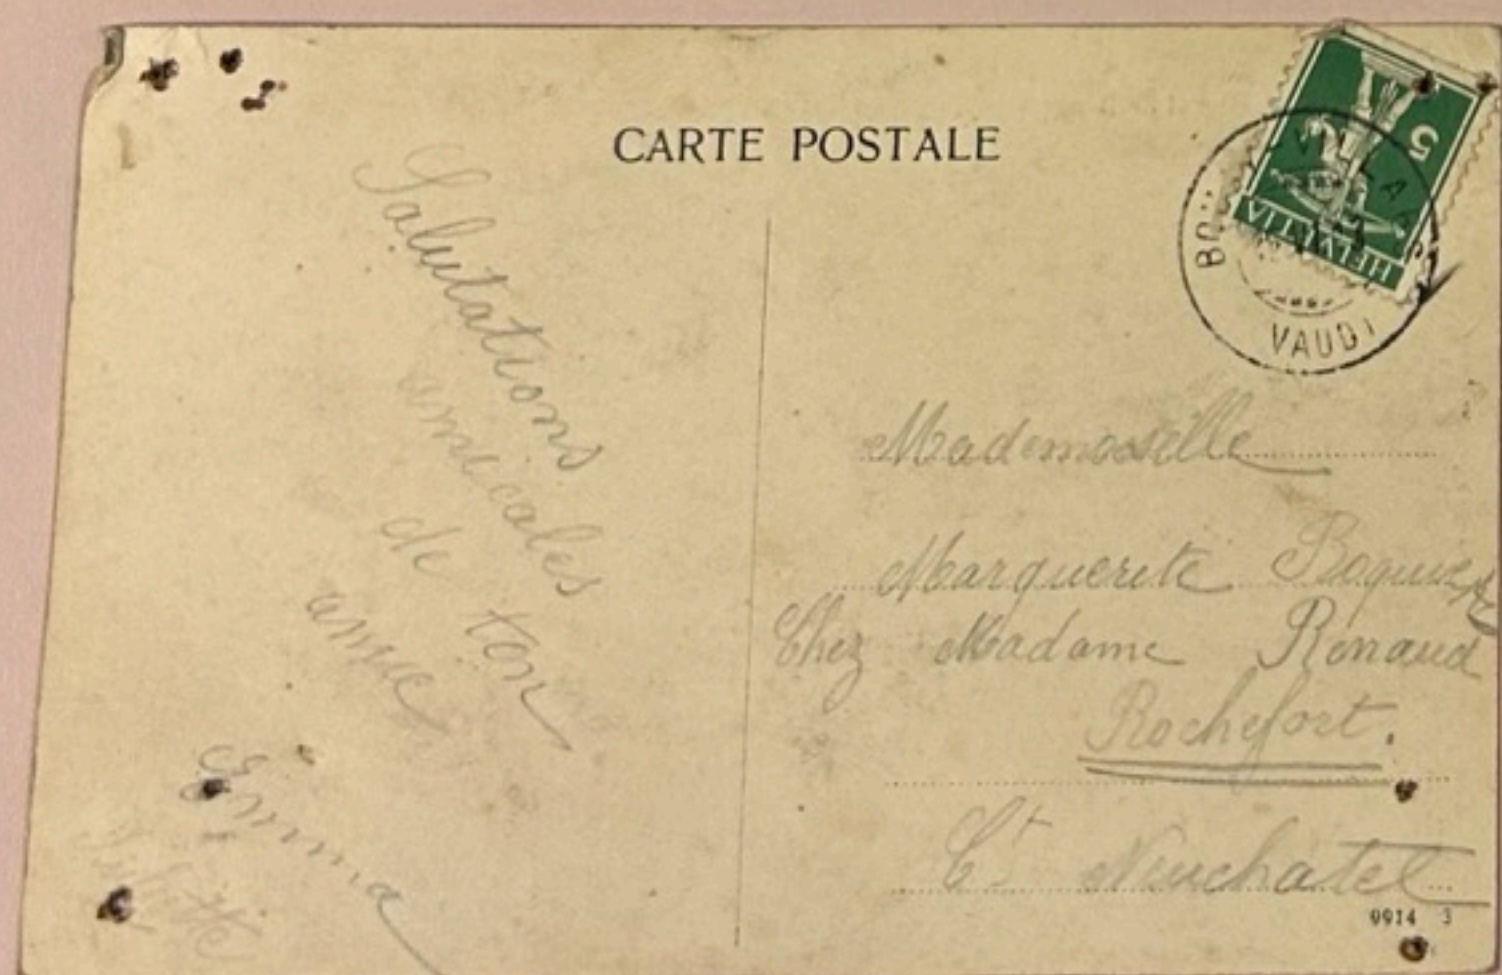 CARTE POSTALE
HELVETIA
5
VAUD
Salutations
amicales
de ton
amie
Emma
Mademoiselle
Marguerite
Chez Madame Renaud
Rochefort.
Ct Neuchatel
9914 3